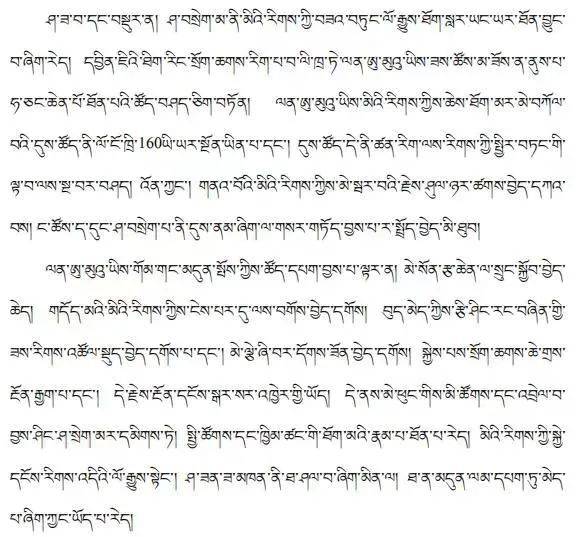 ཤ་ཟ་བ་དང་བསྡུར་ན། ཤ་བསྲེག་མ་ནི་མིའི་རིགས་ཀྱི་བཟའ་བཏུང་ལོ་རྒྱུས་ཐོག་སླར་ཡང་ཡར་ཐོན་བྱུང་
བ་ཞིག་རེད། དབྱིན་ཇིའི་ཐིག་རིང་སྲོག་ཆགས་རིག་པ་བ་ལི་ཁྲ་ཏེ་ལན་ཨུ་མུའུ་ཡིས་ཟས་ཚོས་མ་ཟོས་ན་ནུས་པ་
ཧ་ཅང་ཆེན་པོ་ཐོན་པའི་ཚོད་བཤད་ཅིག་བཏོན། ལན་ཨུ་མུའུ་ཡིས་མིའི་རིགས་ཀྱིས་ཆེས་ཐོག་མར་མེ་བཀོལ་
བའི་དུས་ཚོད་ནི་ལོ་ངོ་ཁྲི་160ཡི་ཡར་སྔོན་ཡིན་པ་དང་། དུས་ཚོད་དེ་ནི་ཚན་རིག་ལས་རིགས་ཀྱི་སྤྱིར་བཏང་གི་
ལྟ་བ་ལས་སྔ་བར་བཤད། འོན་ཀྱང་། གནའ་བོའི་མིའི་རིགས་ཀྱིས་མེ་སྦར་བའི་རྗེས་ཤུལ་ཉར་ཚགས་བྱེད་དཀའ་
བས། ང་ཚོས་ད་དུང་ཤ་བསྲེག་པ་ནི་དུས་ནམ་ཞིག་ལ་གསར་གཏོད་བྱས་པ་ར་སྤྲོད་བྱེད་མི་ཐུབ།
ལན་ཨུ་མུའུ་ཡིས་གོམ་གང་མདུན་སྤོས་ཀྱིས་ཚོད་དཔག་བྱས་པ་ལྟར་ན། མེ་སོན་རྩ་ཆེན་ལ་སྲུང་སྐྱོབ་བྱེད་
ཆེད། གདོད་མའི་མིའི་རིགས་ཀྱིས་ངེས་པར་དུ་ལས་བགོས་བྱེད་དགོས། བུད་མེད་ཀྱིས་རྩི་ཤིང་རང་བཞིན་གྱི་
ཟས་རིགས་འཚོལ་སྡུད་བྱེད་དགོས་པ་དང་། མེ་ལྕེ་ཞི་བར་དོགས་ཟོན་བྱེད་དགོས། སྐྱེས་པས་སྲོག་ཆགས་ཆེ་གྲས་
རྔོན་རྒྱག་པ་དང་། དེ་རྗེས་རྔོན་དངོས་སྒར་སར་འཁྱེར་གྱི་ཡོད། དེ་ནས་མེ་ཕུང་གིས་མི་ཚོགས་དང་འབྲེལ་བ་
བྱས་ཤིང་ཤ་སྲེག་མར་དམིགས་ཏེ། སྤྱི་ཚོགས་དང་ཁྱིམ་ཚང་གི་ཐོག་མའི་རྣམ་པ་ཐོན་པ་རེད། མིའི་རིགས་ཀྱི་སྐྱེ་
དངོས་རིགས་འདིའི་ལོ་རྒྱུས་སྟེང་། ཤ་ཟན་ཟ་མཁན་ནི་ཐ་ཤལ་བ་ཞིག་མིན་ལ། ཐ་ན་མདུན་ལམ་དཔག་ཏུ་མེད་
པ་ཞིག་ཀྱང་ཡོད་པ་རེད།